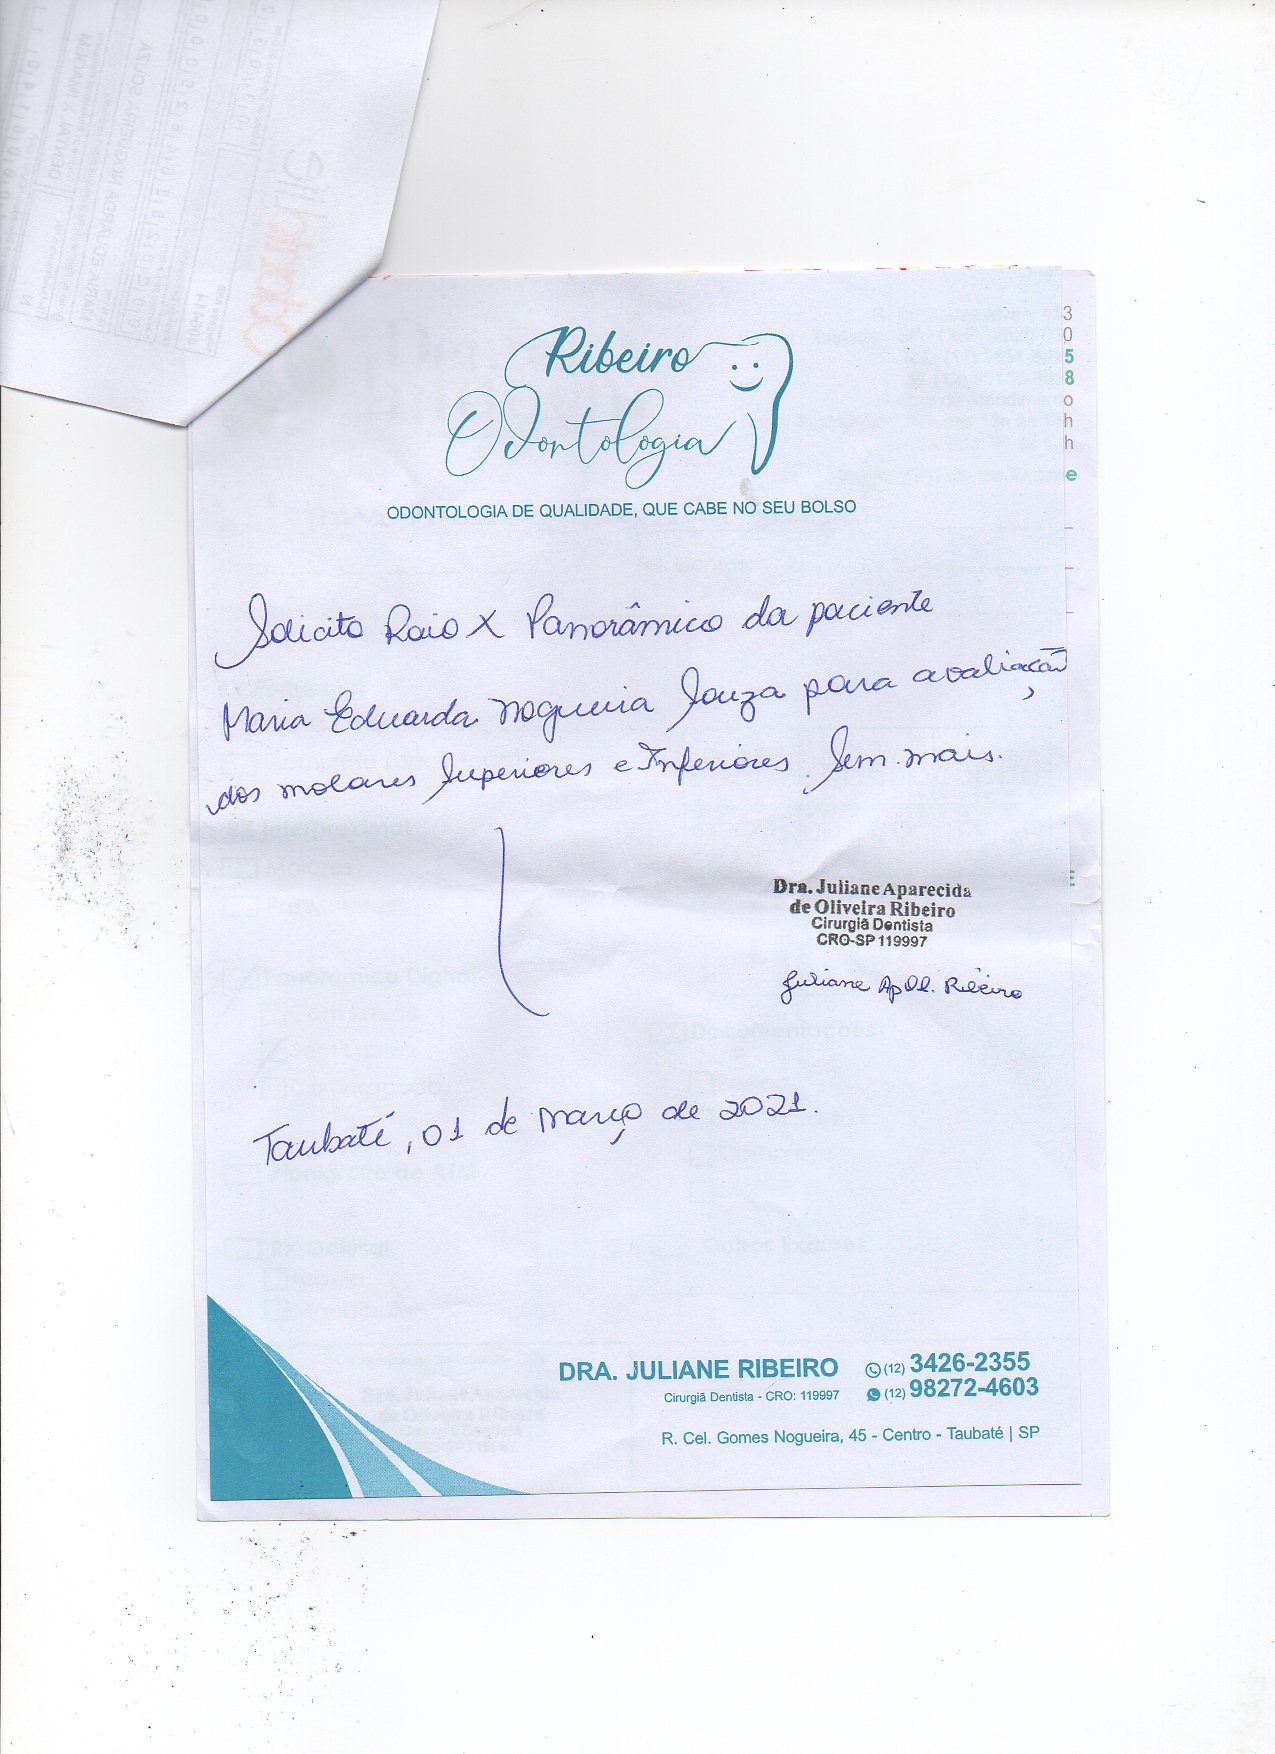 Ribeiro
Odontologia
ODONTOLOGIA DE QUALIDADE, QUE CABE NO SEU BOLSO
Solicito Raio X Panorâmico da paciente
Maria Eduarda Nogueira Souza para avaliação
dos molares Superiores e Inferiores. Sem mais.
Dra. Juliane Aparecida
de Oliveira Ribeiro
Cirurgiã Dentista
CRO-SP 119997
Juliane Ap Ol. Ribeiro
Taubaté, 01 de março de 2021.
DRA. JULIANE RIBEIRO (12) 3426-2355
Cirurgiã Dentista - CRO: 119997 (12) 98272-4603
R. Cel. Gomes Nogueira, 45 - Centro - Taubaté | SP